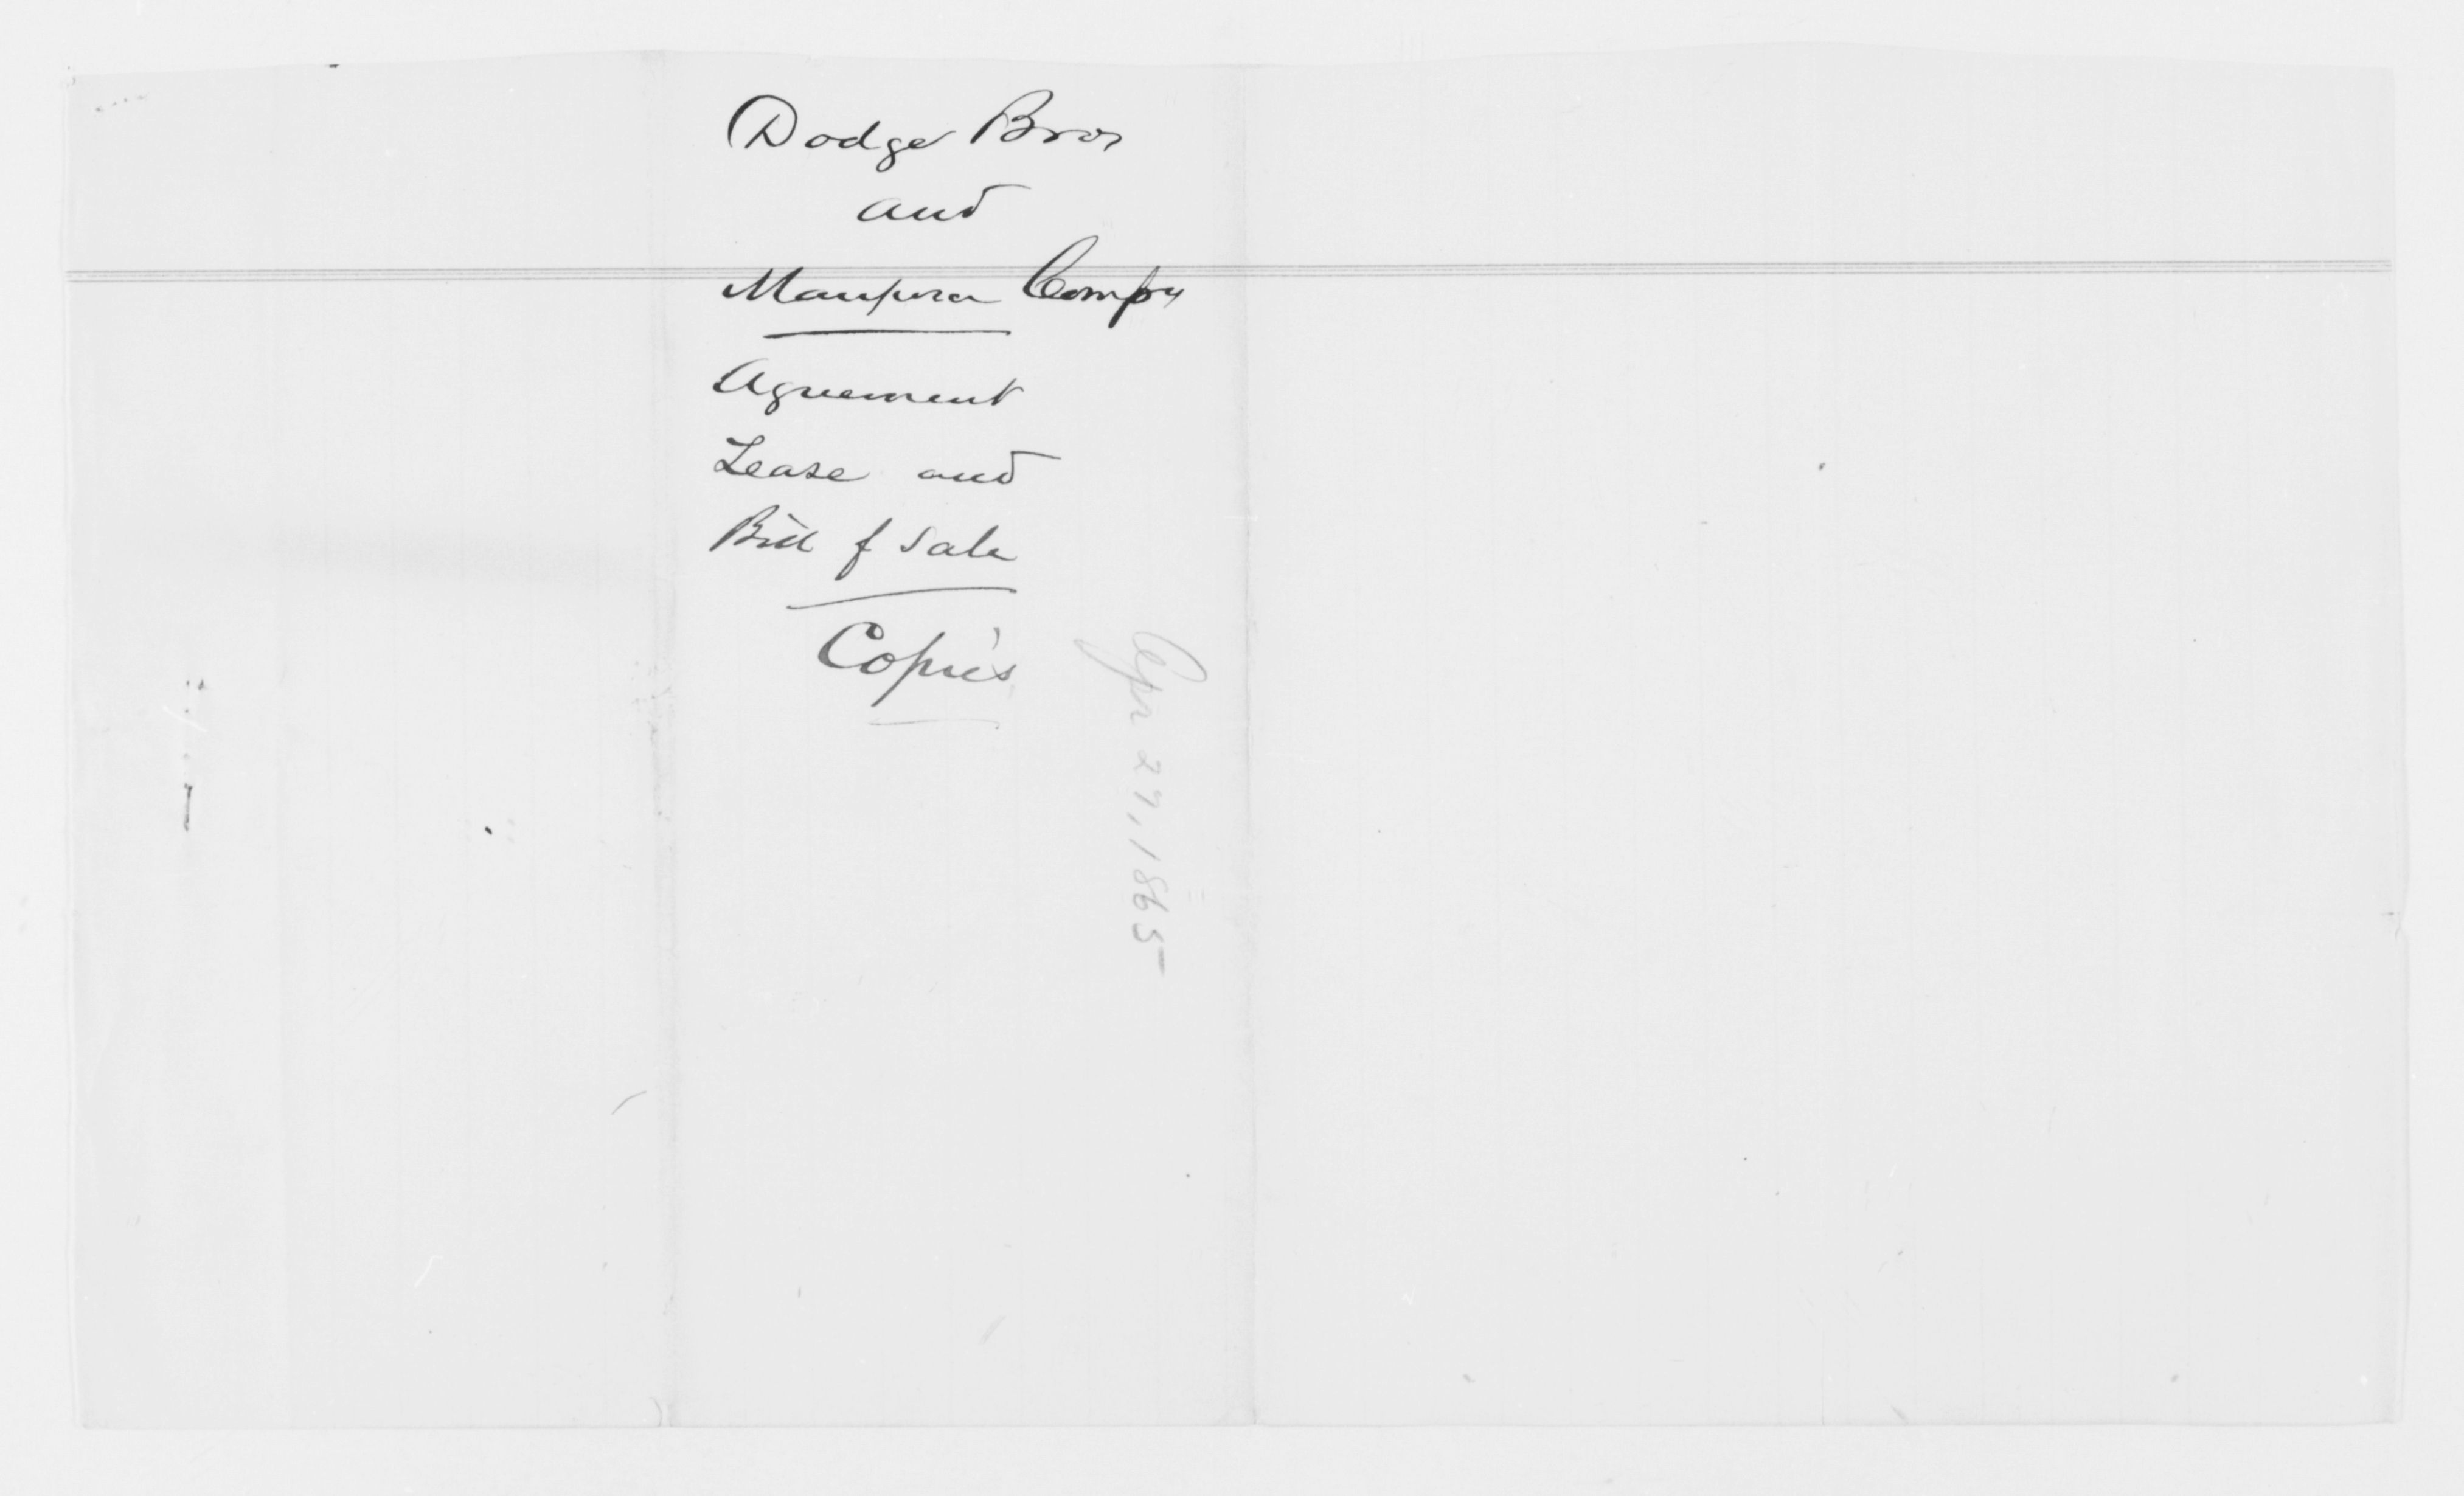 Dodge Bros
and
Compy
Agreement
Lease and
Bill of Sale
Copies
Apr 27, 1865